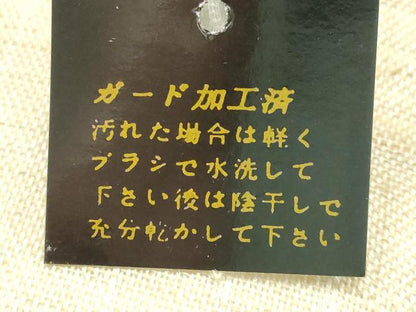 ガード加工済
汚れた場合は軽く
ブラシで水洗して
下さい後は陰干しで
充分乾かして下さい